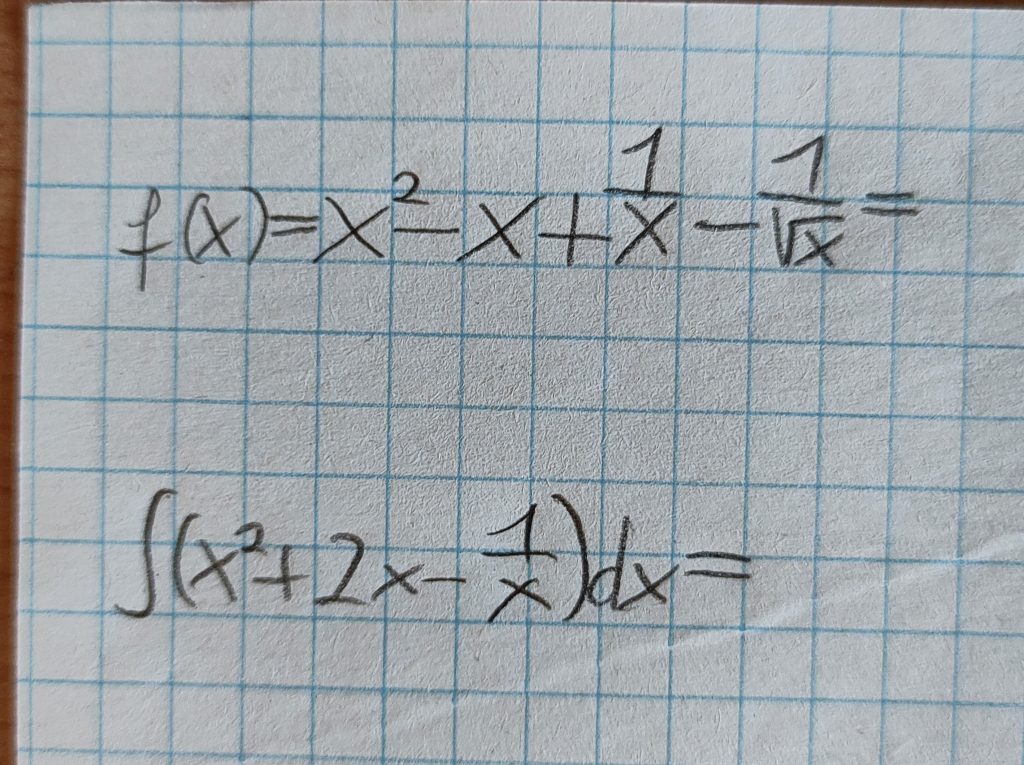 f(x)=x²-x+1/x-1/√x=
∫(x²+2x-1/x)dx=